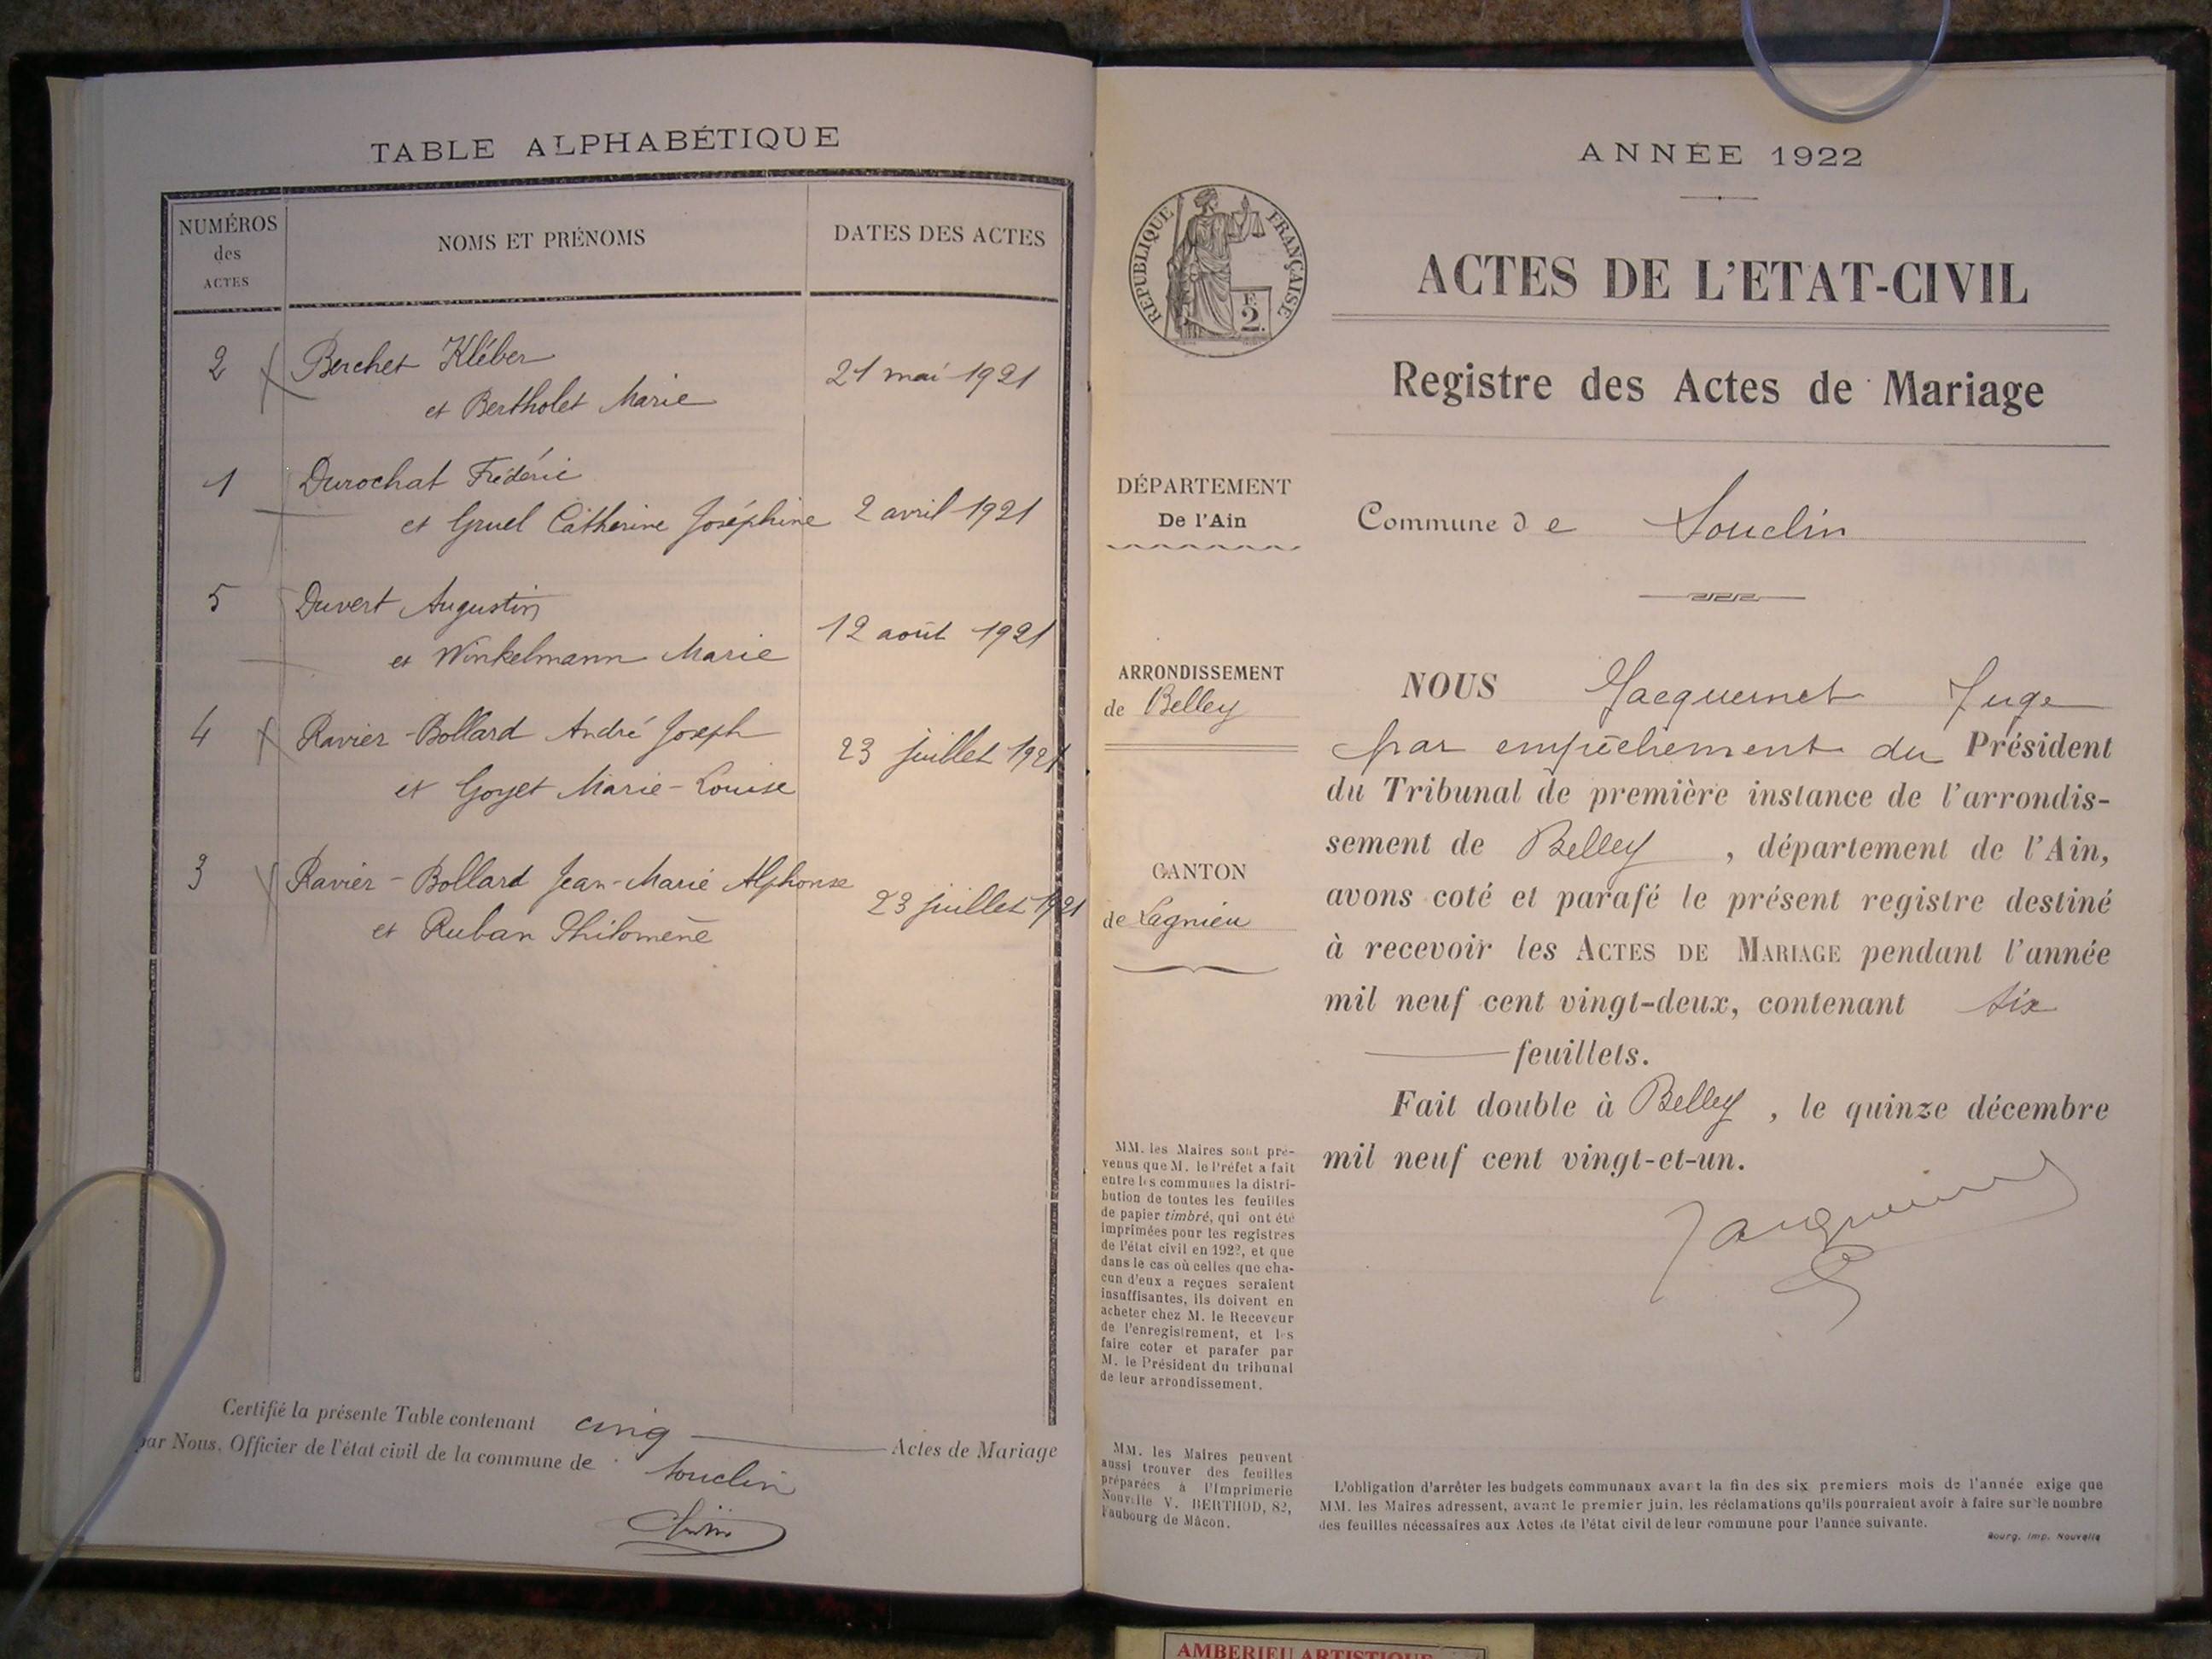 TABLE ALPHABÉTIQUE
NUMÉROS
des
ACTES
NOMS ET PRÉNOMS
DATES DES ACTES
2 Berchet Kléber
et Bertholet Marie
21 mai 1921
1 Durochat Frédéric
et Gruel Catherine Joséphine 2 avril 1921
5 Duvert Augustin
et Winkelmann Marie
12 août 1921
4 Ravier-Bollard André Joseph
et Goyet Marie-Louise
23 juillet 1921
3 Ravier-Bollard Jean-Marie Alphonse
et Ruban Philomène
23 juillet 1921
Certifié la présente Table contenant cinq Actes de Mariage
par Nous, Officier de l'état civil de la commune de Souclin
ANNÉE 1922
RÉPUBLIQUE FRANÇAISE
F.
2.
ACTES DE L'ETAT-CIVIL
Registre des Actes de Mariage
DÉPARTEMENT
De l'Ain
Commune de Souclin
ARRONDISSEMENT
de Belley
CANTON
de Lagnieu
NOUS Jacquemet Juge
par empêchement du Président
du Tribunal de première instance de l'arrondis-
sement de Belley, département de l'Ain,
avons coté et parafé le présent registre destiné
à recevoir les ACTES DE MARIAGE pendant l'année
mil neuf cent vingt-deux, contenant six
feuillets.
Fait double à Belley, le quinze décembre
mil neuf cent vingt-et-un.
MM. les Maires sont pré-
venus que M. le Préfet a fait
entre les communes la distri-
bution de toutes les feuilles
de papier timbré, qui ont été
imprimées pour les registres
de l'état civil en 1922, et que
dans le cas où celles que cha-
cun d'eux a reçues seraient
insuffisantes, ils doivent en
acheter chez M. le Receveur
de l'enregistrement, et les
faire coter et parafer par
M. le Président du tribunal
de leur arrondissement.
MM. les Maires peuvent
aussi trouver des feuilles
préparées à l'Imprimerie
Nouvelle V. BERTHOD, 82,
Faubourg de Mâcon.
L'obligation d'arrêter les budgets communaux avant la fin des six premiers mois de l'année exige que
MM. les Maires adressent, avant le premier juin, les réclamations qu'ils pourraient avoir à faire sur le nombre
des feuilles nécessaires aux Actes de l'état civil de leur commune pour l'année suivante.
Bourg, Imp. Nouvelle
AMBERIEU ARTISTIQUE